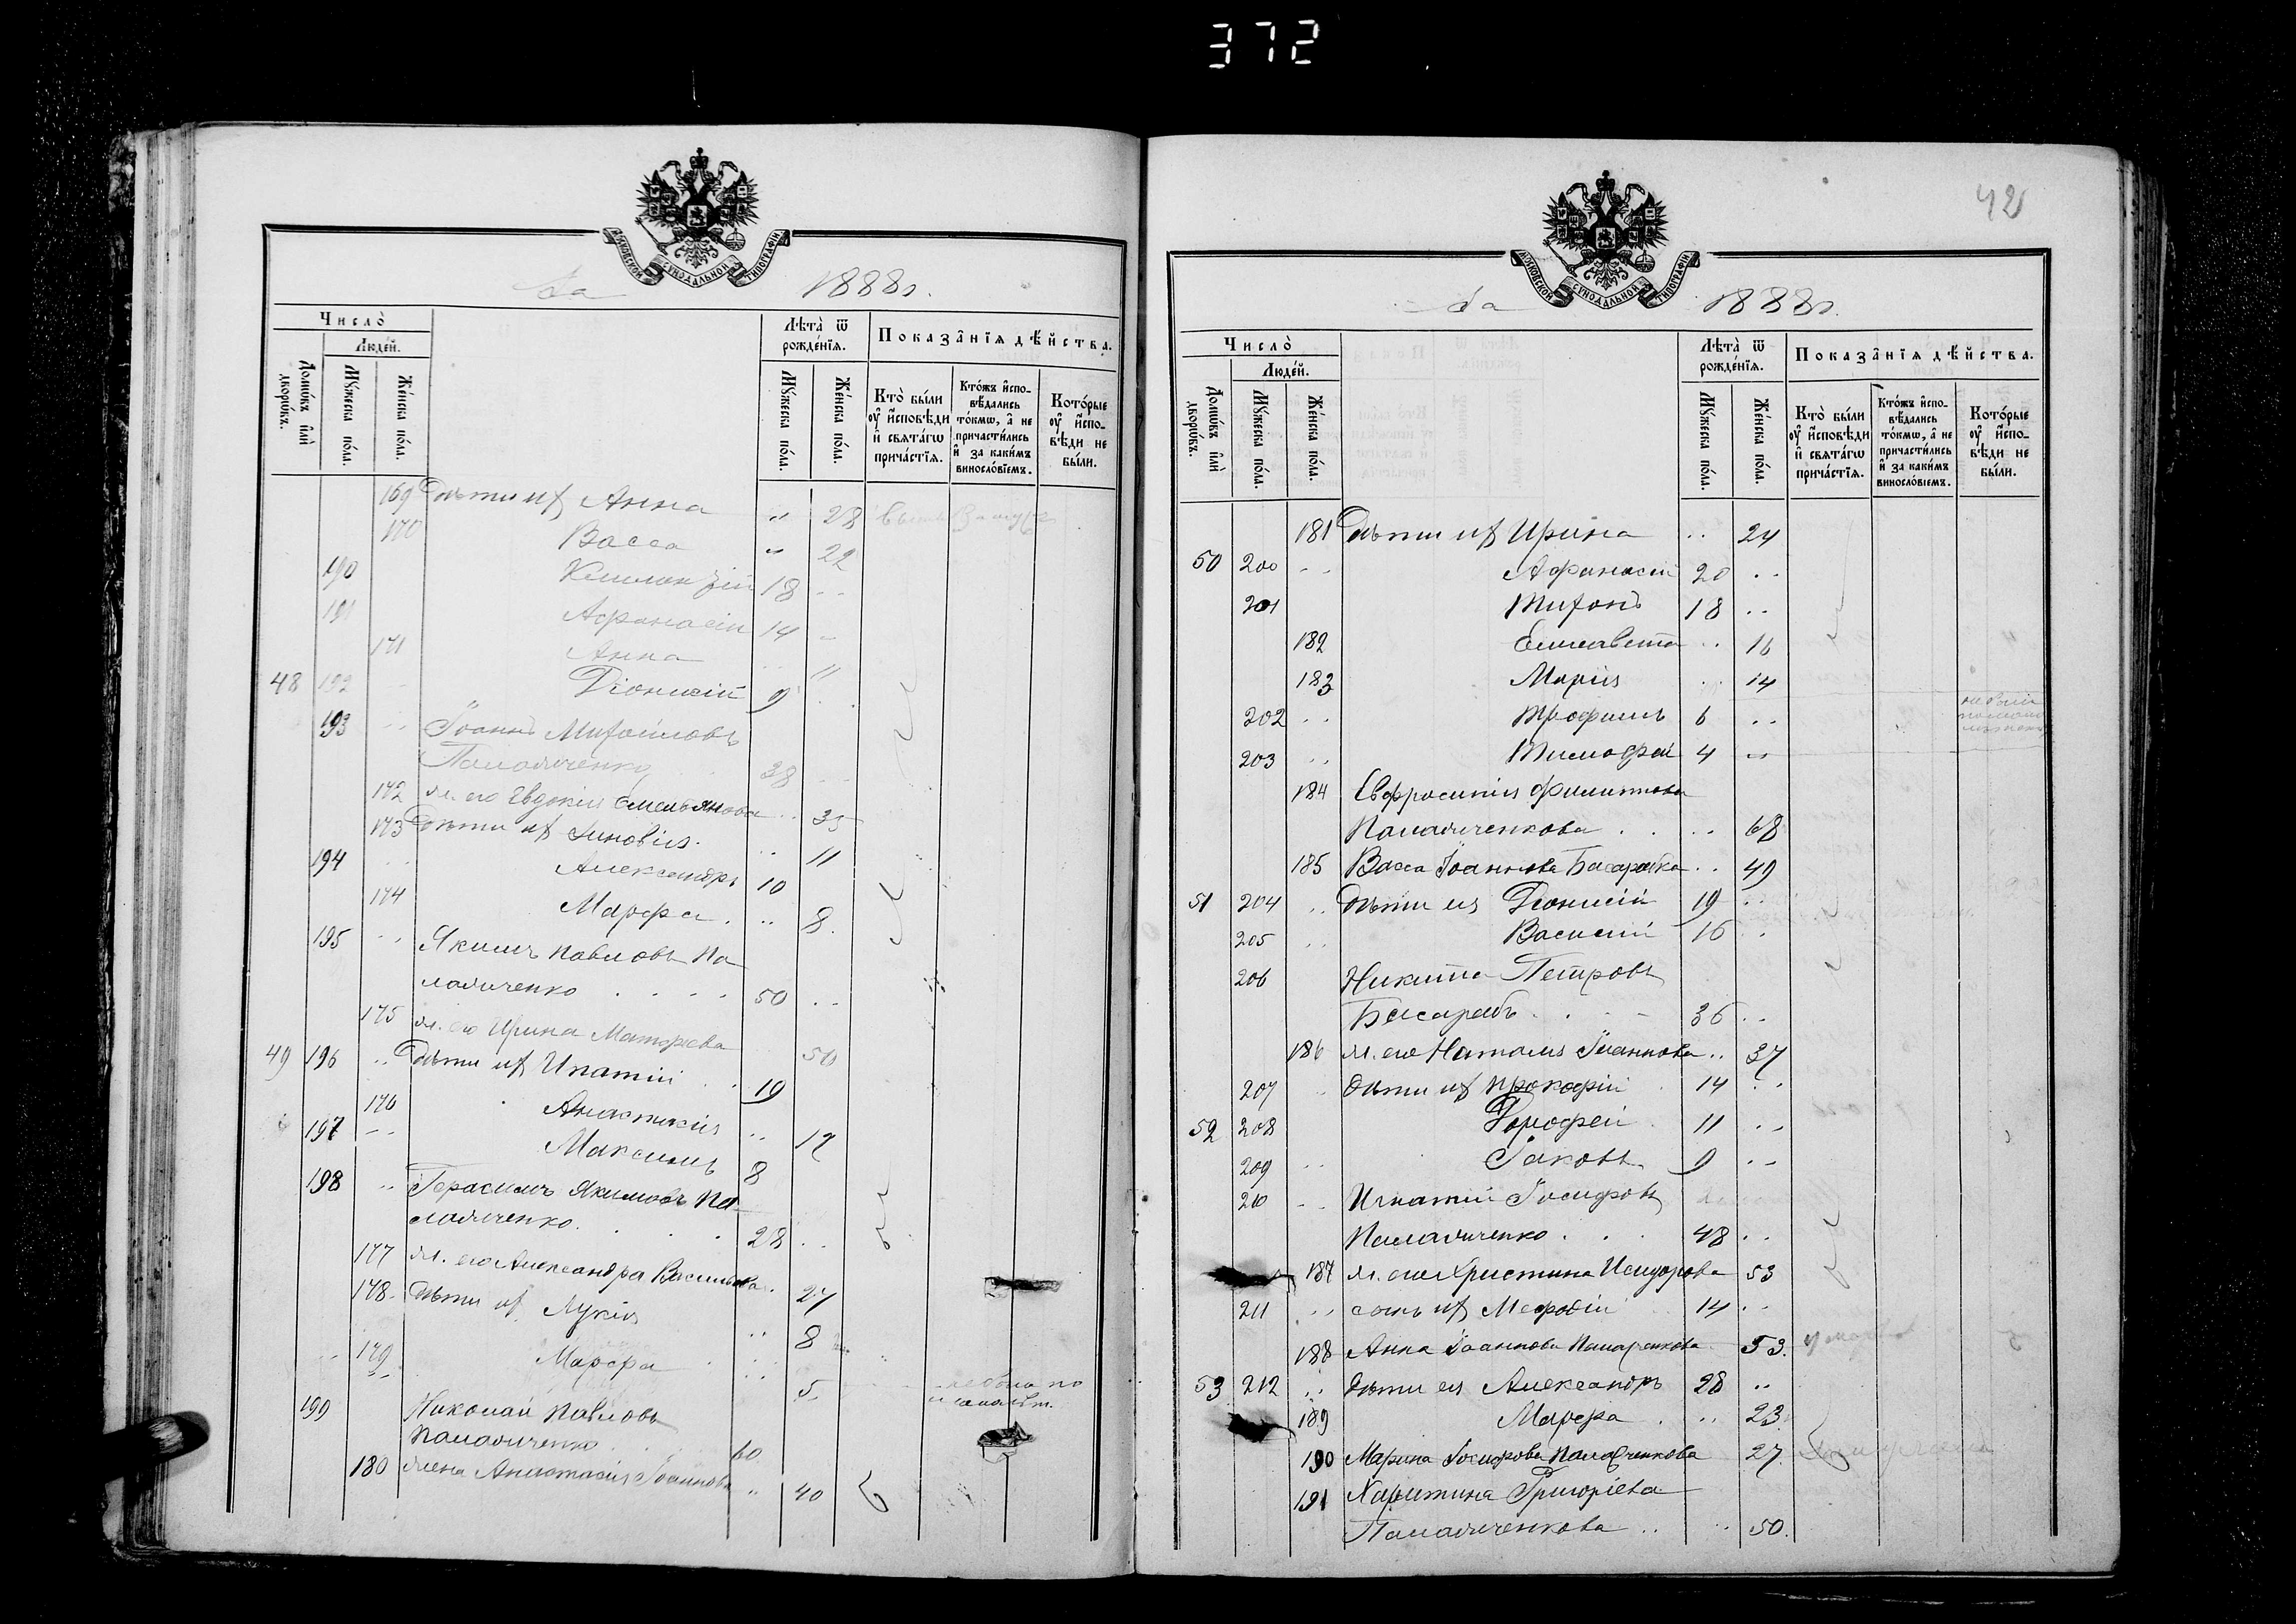 372
МОСКОВСКОЙ СѴНОДАЛЬНОЙ ТИПОГРАФІИ
За 1888 г.
Число̀
Людей.
Домѡ́въ и҆лѝ дворѡ́въ.
Мꙋ́жеска по́ла.
Же́нска по́ла.
Лѣта̀ ѿ рожде́нїѧ.
Мꙋ́жеска по́ла.
Же́нска по́ла.
Показа̂нїѧ дѣ́йства.
Кто̀ бы́ли оу҆ и҆́сповѣди и҆ свѧта́гѡ прича́стїѧ.
Кто́жъ и҆сповѣ́дались то́кмѡ, а҆ не причасти́лись и҆ за каки́мъ винослові́емъ.
Кото́рые оу҆ и҆́сповѣди не бы́ли.
169 Дѣти их Анна " 28
170 Васса " 22
190 18 ..
191 Афанасій 14 ..
171 Анна .. 11
48 192 Діонисій 9 ..
193 .. Іоаннъ Михайловъ
Паламаченко 38 ..
172 ж. его Евдокія Емельянова .. 35
173 Дѣти их Зиновія .. 11
194 .. Александръ 10
174 Марфа .. 8
195 .. Якимъ Павловъ Па
ламаченко 50 ..
175 ж. его Ирина Матфеева 50
49 196 .. Дѣти их Игнатій 19
176 Анастасія .. 12
197 .. Максимъ 8
198 .. Герасимъ Якимовъ Па-
ламаченко 28 ..
177 ж. его Александра Васильева 27
178 Дѣти их Лукія .. 8
179 Марфа .. 5
199 Николай Павловъ
Паламаченко 60
180 жена Анастасія Іоаннова .. 40
42
МОСКОВСКОЙ СѴНОДАЛЬНОЙ ТИПОГРАФІИ
За 1888 г.
Число̀
Людей.
Домѡ́въ и҆лѝ дворѡ́въ.
Мꙋ́жеска по́ла.
Же́нска по́ла.
Лѣта̀ ѿ рожде́нїѧ.
Мꙋ́жеска по́ла.
Же́нска по́ла.
Показа̂нїѧ дѣ́йства.
Кто̀ бы́ли оу҆ и҆́сповѣди и҆ свѧта́гѡ прича́стїѧ.
Кто́жъ и҆сповѣ́дались то́кмѡ, а҆ не причасти́лись и҆ за каки́мъ винослові́емъ.
Кото́рые оу҆ и҆́сповѣди не бы́ли.
181 Дѣти их Ирина .. 24
50 200 .. Афанасій 20 ..
201 Тихонъ 18 ..
182 Елисавета .. 16
183 Марія .. 14
202 .. Трофимъ 6 ..
203 .. Тимофей 4 ..
184 Евфросинія Филиппова
Паламаченкова .. 68
185 Васса Іоаннова Басарабка .. 49
51 204 .. Дѣти ея Діонисій 19 ..
205 .. Василій 16 ..
206 Никита Петровъ
Басарабъ 36 ..
186 ж. его Наталія Іоаннова .. 37
207 .. Дѣти их Прокофій 14 ..
52 208 Дорофей 11 ..
209 .. Іаковъ 9 ..
210 .. Игнатій Іосифовъ
Паламаченко 48 ..
187 ж. его Христина Исидорова 53
211 .. сынъ их Мефодій 14 ..
188 Анна Іоаннова 53
53 212 .. Дѣти ея Александръ 28 ..
189 Марфа .. 23
190 Марина Іосифова Паламаченкова 27
191 Харитина Григоріева
Паламаченкова .. 50